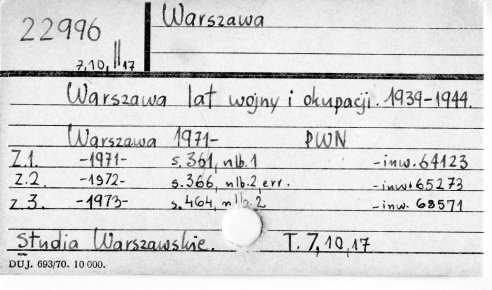 22996
7,10, II 17
Warszawa
Warszawa lat wojny i okupacji. 1939-1944.
Warszawa 1971- PWN
Z.1. -1971- s.361, nlb.1 -inw.64123
z.2. -1972- s.366, nlb.2, err. -inw.65273
z.3. -1973- s.464, nlb.2 -inw.68571
Studia Warszawskie. T. 7,10,17
DUJ. 693/70. 10 000.